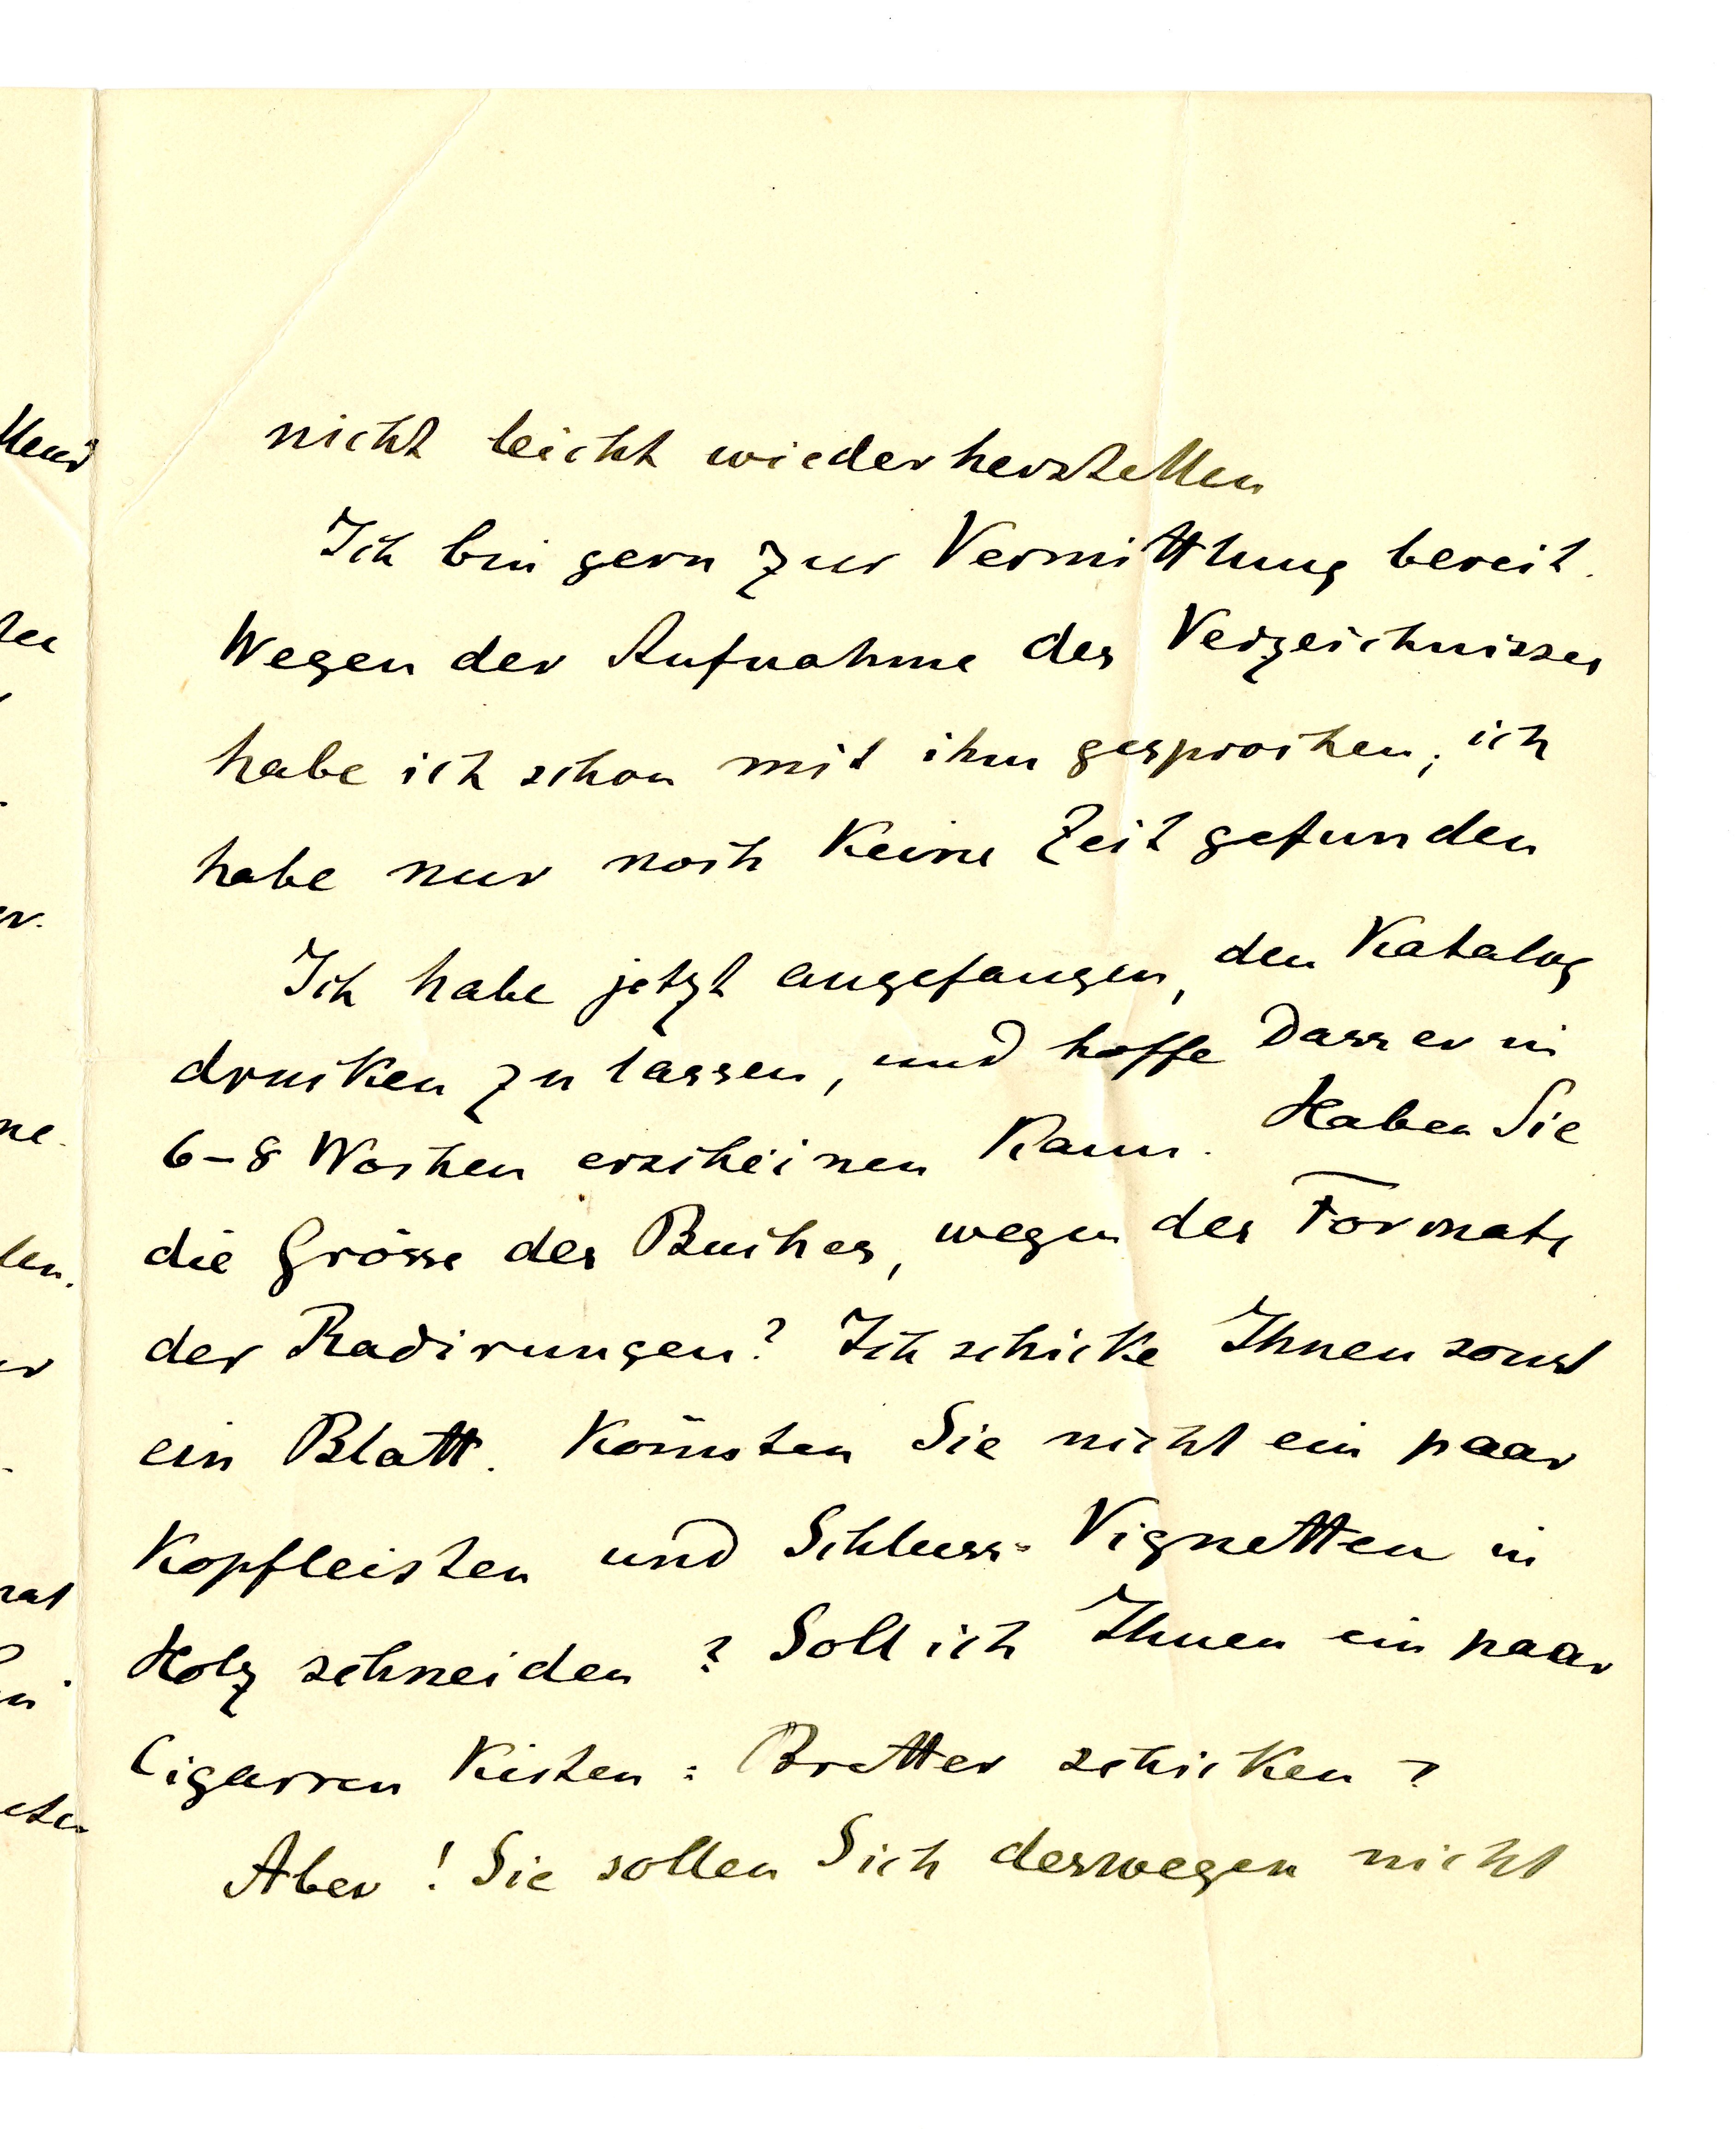 nicht leicht wiederherstellen
Ich bin gern zur Vermittlung bereit.
Wegen der Aufnahme des Verzeichnisses
habe ich schon mit ihm gesprochen; ich
habe nur noch keine Zeit gefunden
Ich habe jetzt angefangen, den Katalog
drucken zu lassen, und hoffe dass er in
6-8 Wochen erscheinen kann. Haben Sie
die Grösse des Buches, wegen des Formats
der Radirungen? Ich schicke Ihnen sonst
ein Blatt. Könnten Sie nicht ein paar
Kopfleisten und Schluss-Vignetten in
Holz schneiden? Soll ich Ihnen ein paar
Cigarren Kisten-Bretter schicken?
Aber! Sie sollen Sich deswegen nicht